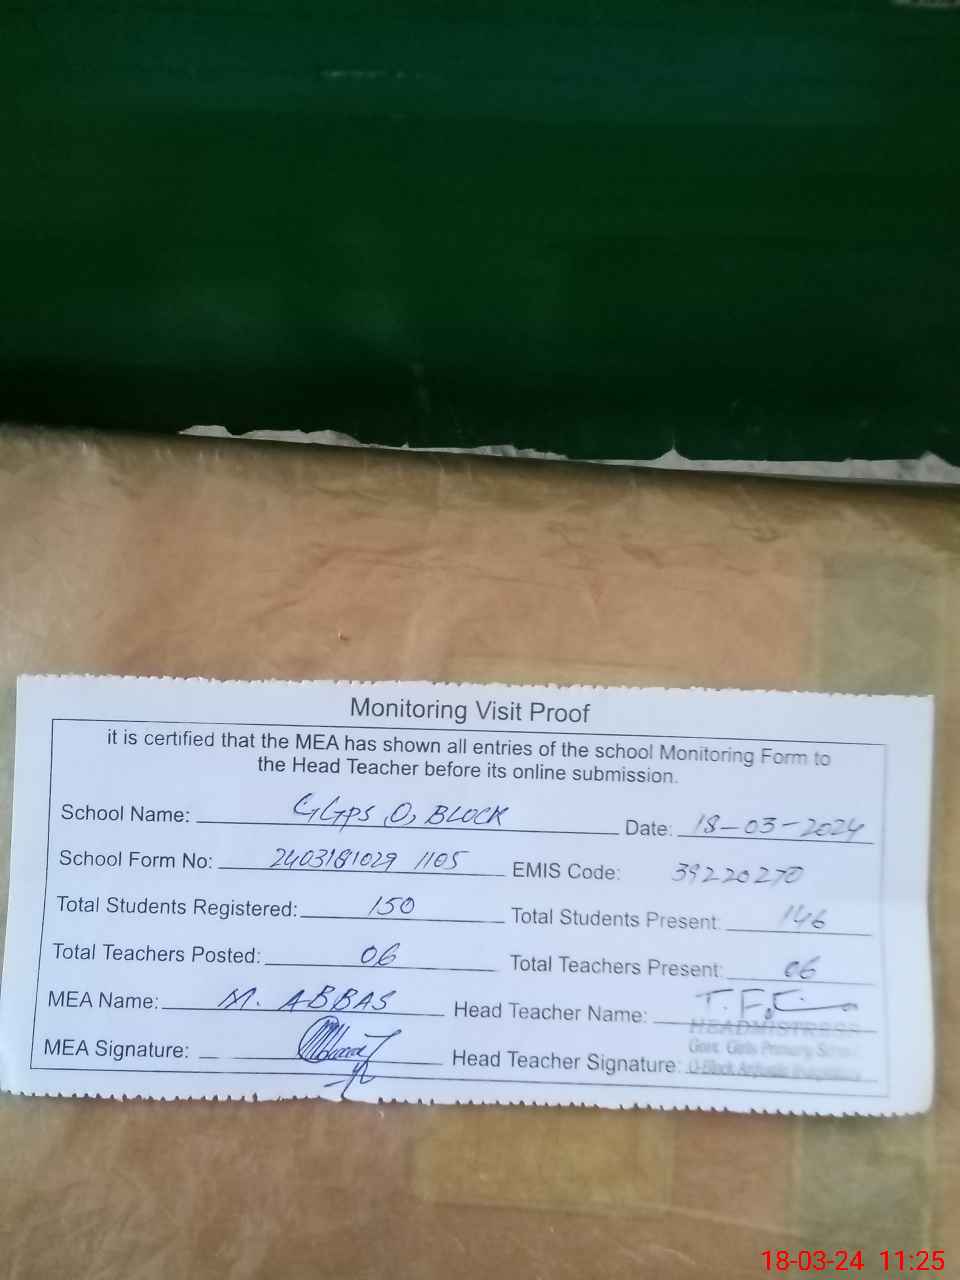 Monitoring Visit Proof
it is certified that the MEA has shown all entries of the school Monitoring Form to
the Head Teacher before its online submission.
School Name: GGPS O, BLOCK Date: 18-03-2024
School Form No: 2403181029 1105 EMIS Code: 39220270
Total Students Registered: 150 Total Students Present: 146
Total Teachers Posted: 06 Total Teachers Present: 06
MEA Name: M. ABBAS Head Teacher Name:
HEADMISTRESS
Govt. Girls Primary School
MEA Signature: Head Teacher Signature: O-Block
18-03-24 11:25